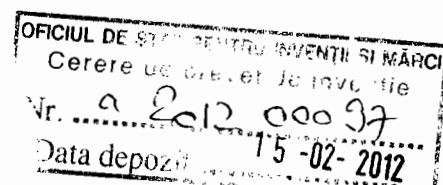 OFICIUL DE STAT PENTRU INVENȚII ȘI MĂRCI
Cerere de brevet de invenție
Nr. a 2012 00097
Data depozit 15 -02- 2012